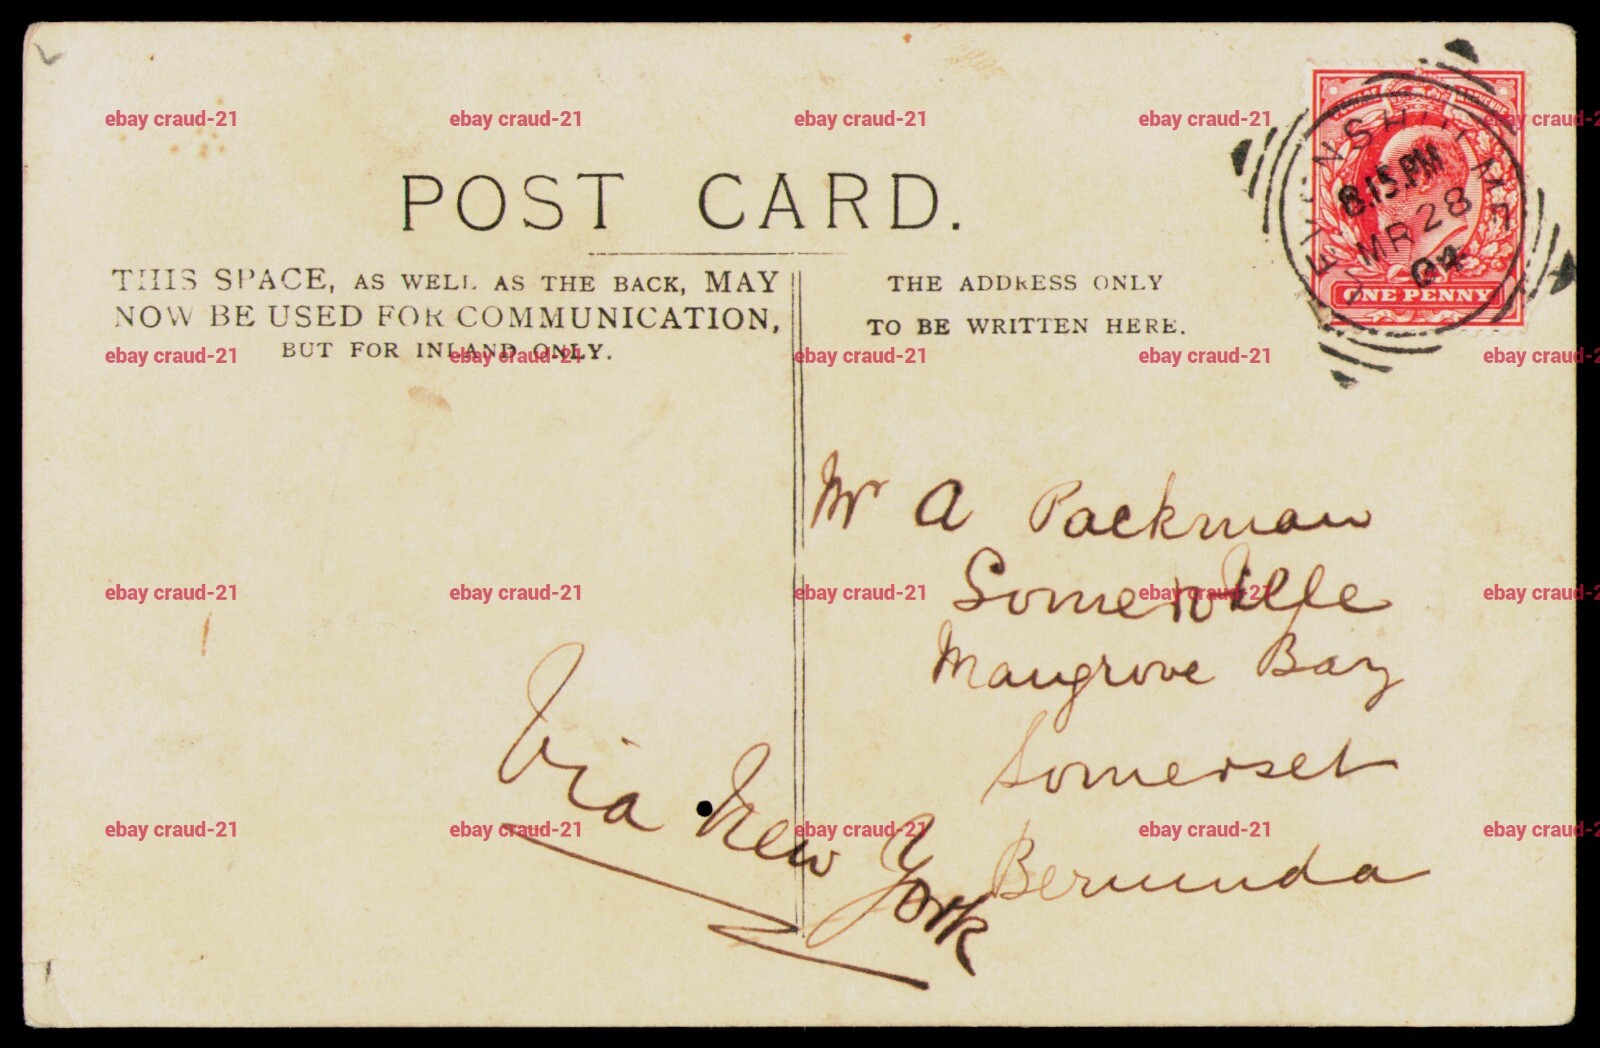 POST CARD.
THIS SPACE, AS WELL AS THE BACK, MAY
NOW BE USED FOR COMMUNICATION,
BUT FOR INLAND ONLY.
THE ADDRESS ONLY
TO BE WRITTEN HERE.
8.15.PM
MR 28
04
ONE PENNY
Mr A Packman
Somerville
Mangrove Bay
Somerset
Bermuda
Via New York
ebay craud-21 ebay craud-21 ebay craud-21 ebay craud-21 ebay craud-2
ebay craud-21 ebay craud-21 ebay craud-21 ebay craud-21 ebay craud-2
ebay craud-21 ebay craud-21 ebay craud-21 ebay craud-21 ebay craud-2
ebay craud-21 ebay craud-21 ebay craud-21 ebay craud-21 ebay craud-2